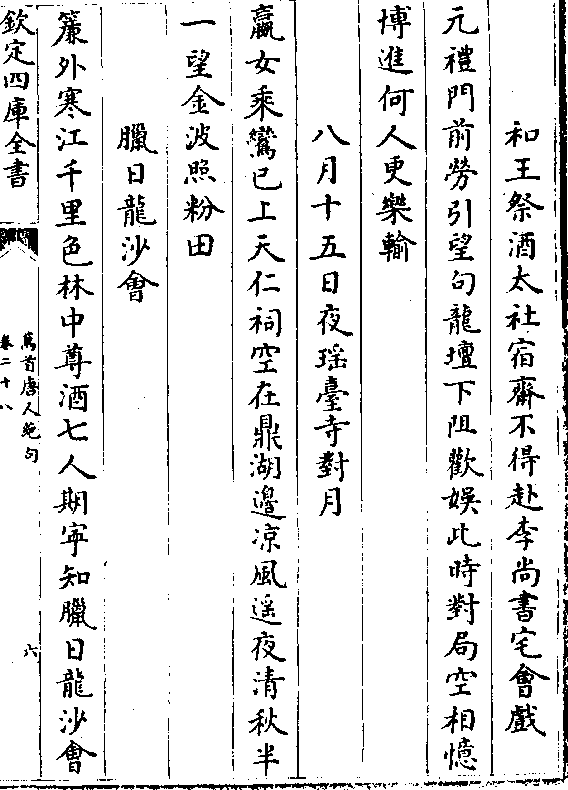 和王祭酒太社宿齋不得赴李尚書宅會戲
元禮門前勞引望句龍壇下阻歡娛此時對局空相憶
博進何人更樂輸
八月十五日夜瑶臺寺對月
嬴女乘鸞已上天仁祠空在鼎湖邊凉風遥夜清秋半
一望金波照粉田
臘日龍沙會
簾外寒江千里色林中尊酒七人期寜知臘日龍沙會
欽定四庫全書
萬首唐人絶句
卷二十八
六